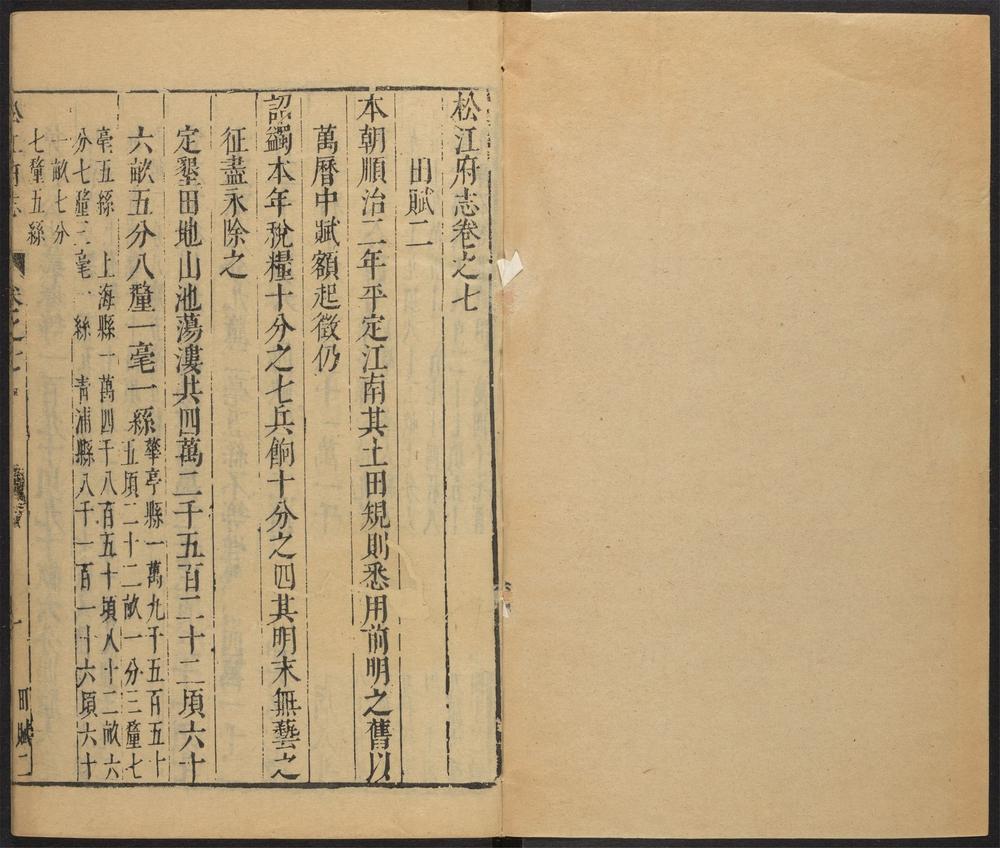 松江府志卷之七
田賦二
本朝順治二年平定江南其土田規則悉用前明之舊以
萬曆中賦額起徵仍
詔蠲本年稅糧十分之七兵餉十分之四其明末無藝之
征盡永除之
定墾田地山池蕩漊共四萬二千五百二十二頃六十
六畝五分八釐一毫一絲
華亭縣一萬九千五百五十
五頃二十二畝一分三釐七
毫五絲 上海縣一萬四千八百五十頃八十二畝六
分七釐三毫一絲 青浦縣八千一百一十六頃六十
一畝七分
七釐五絲
松江府志 卷之七 田賦二